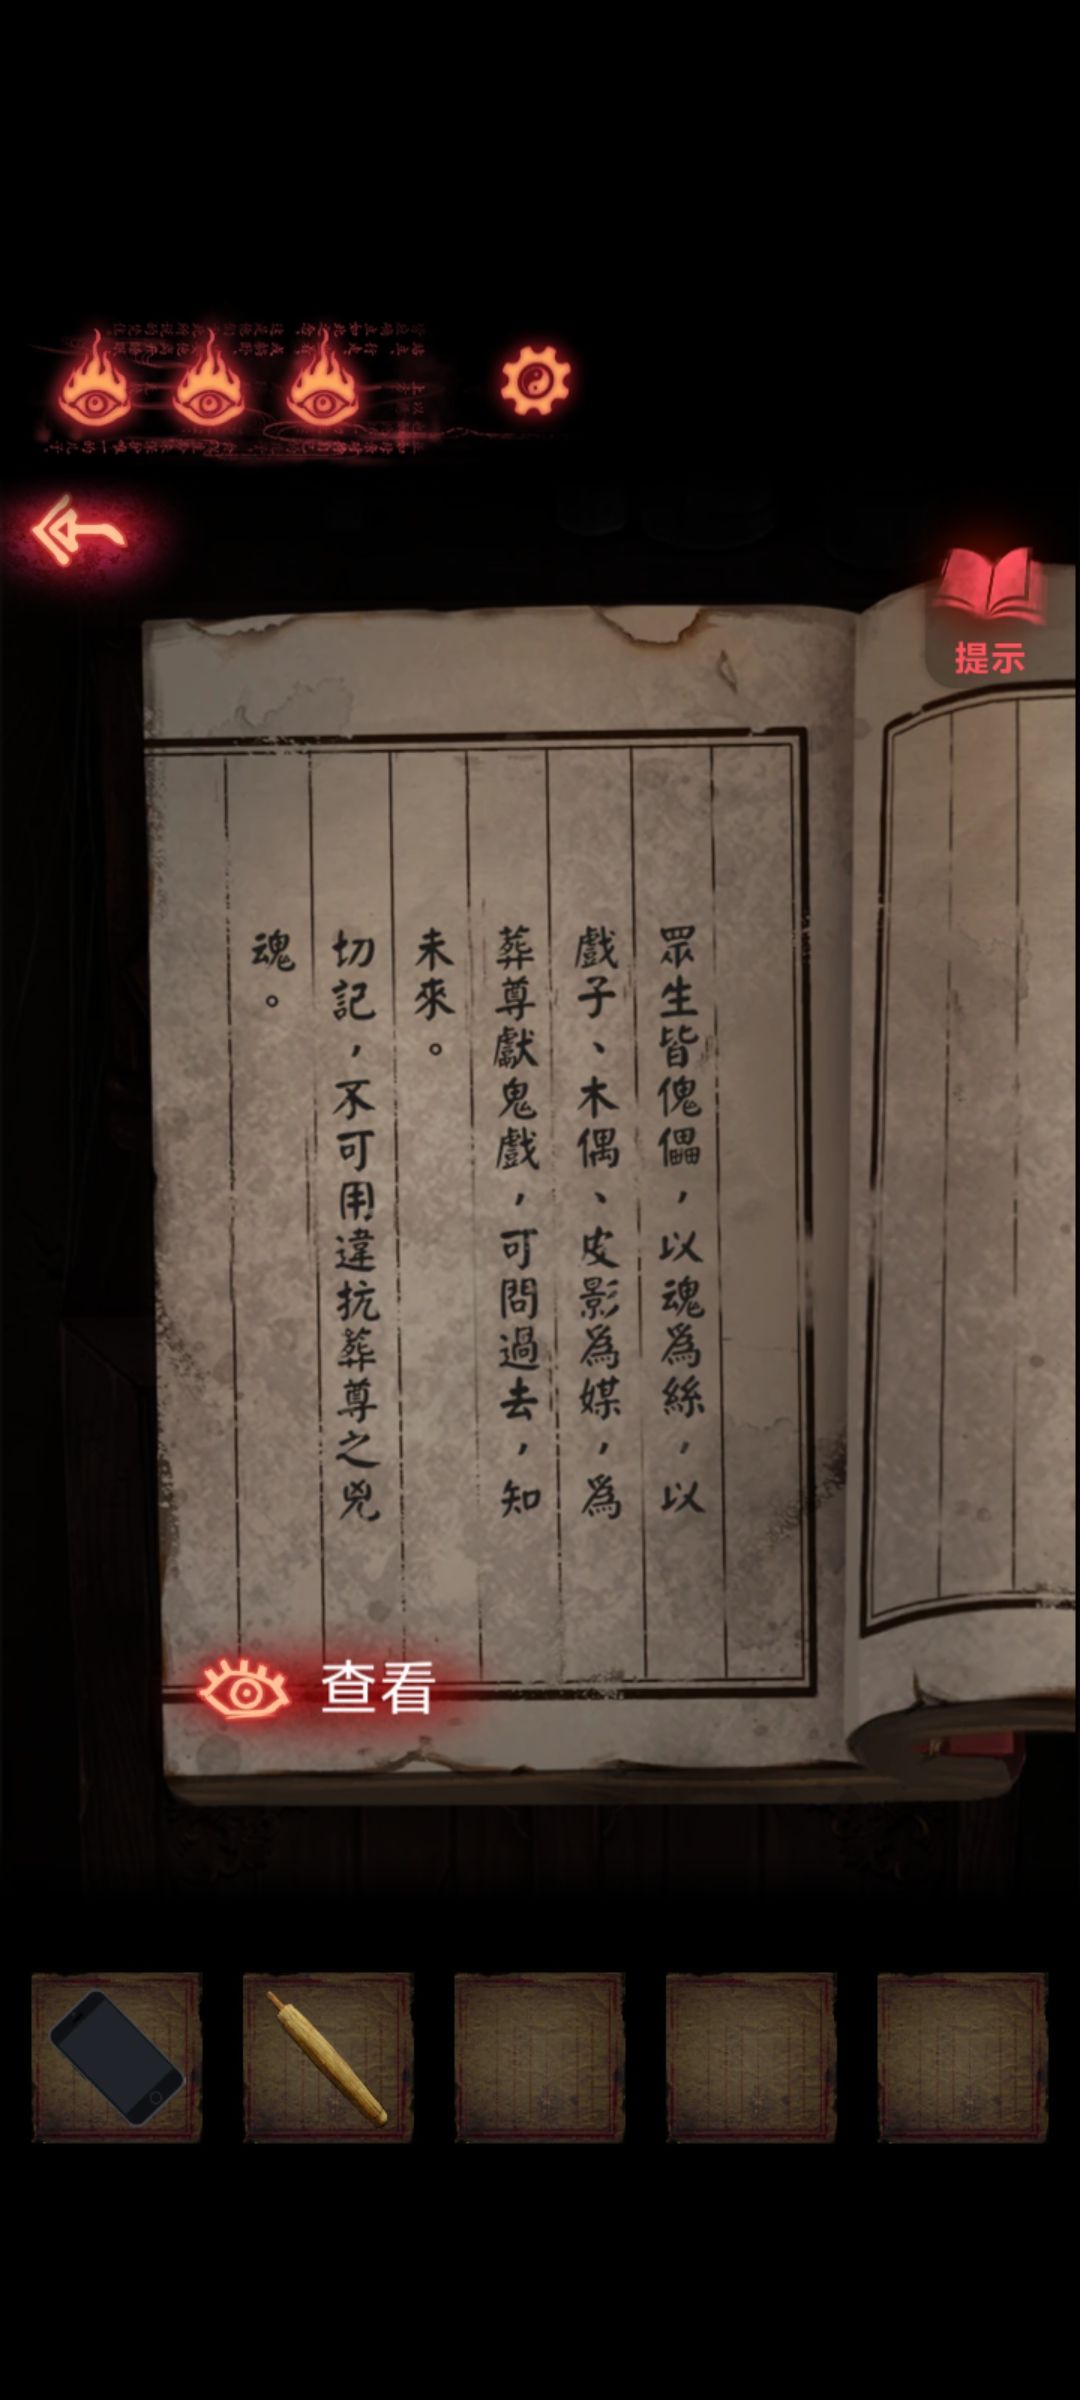 提示
眾生皆傀儡，以魂爲絲，以
戲子、木偶、皮影爲媒，爲
葬尊獻鬼戲，可問過去，知
未來。
切記，不可用違抗葬尊之兇
魂。
查看